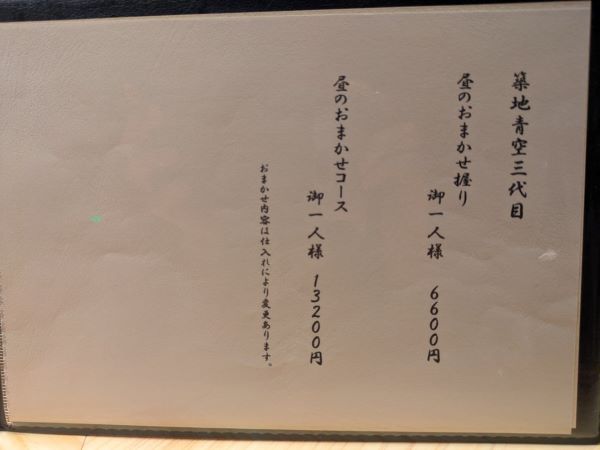 築地青空三代目
昼のおまかせ握り
御一人様 6600円
昼のおまかせコース
御一人様 13200円
おまかせ内容は仕入れにより変更あります。